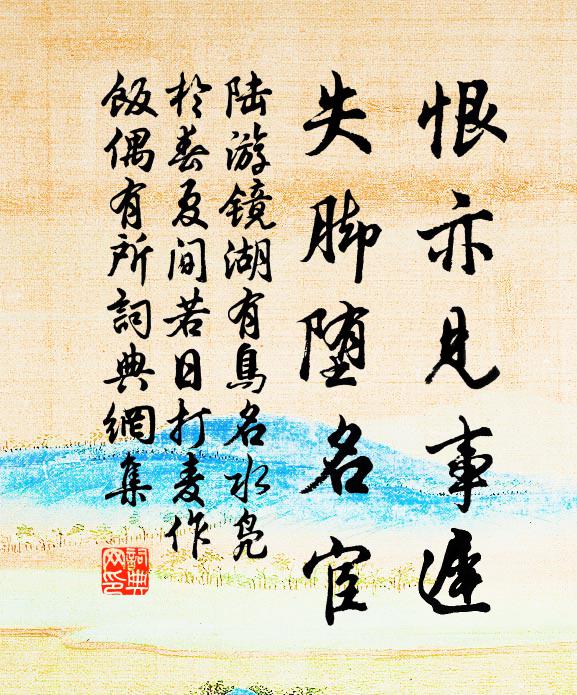 恨亦見事遲
失脚堕名宦
陆游镜湖有鳥名水凫
於春夏间若日打麦作
飯偶有所詞典網集
詞典
网印